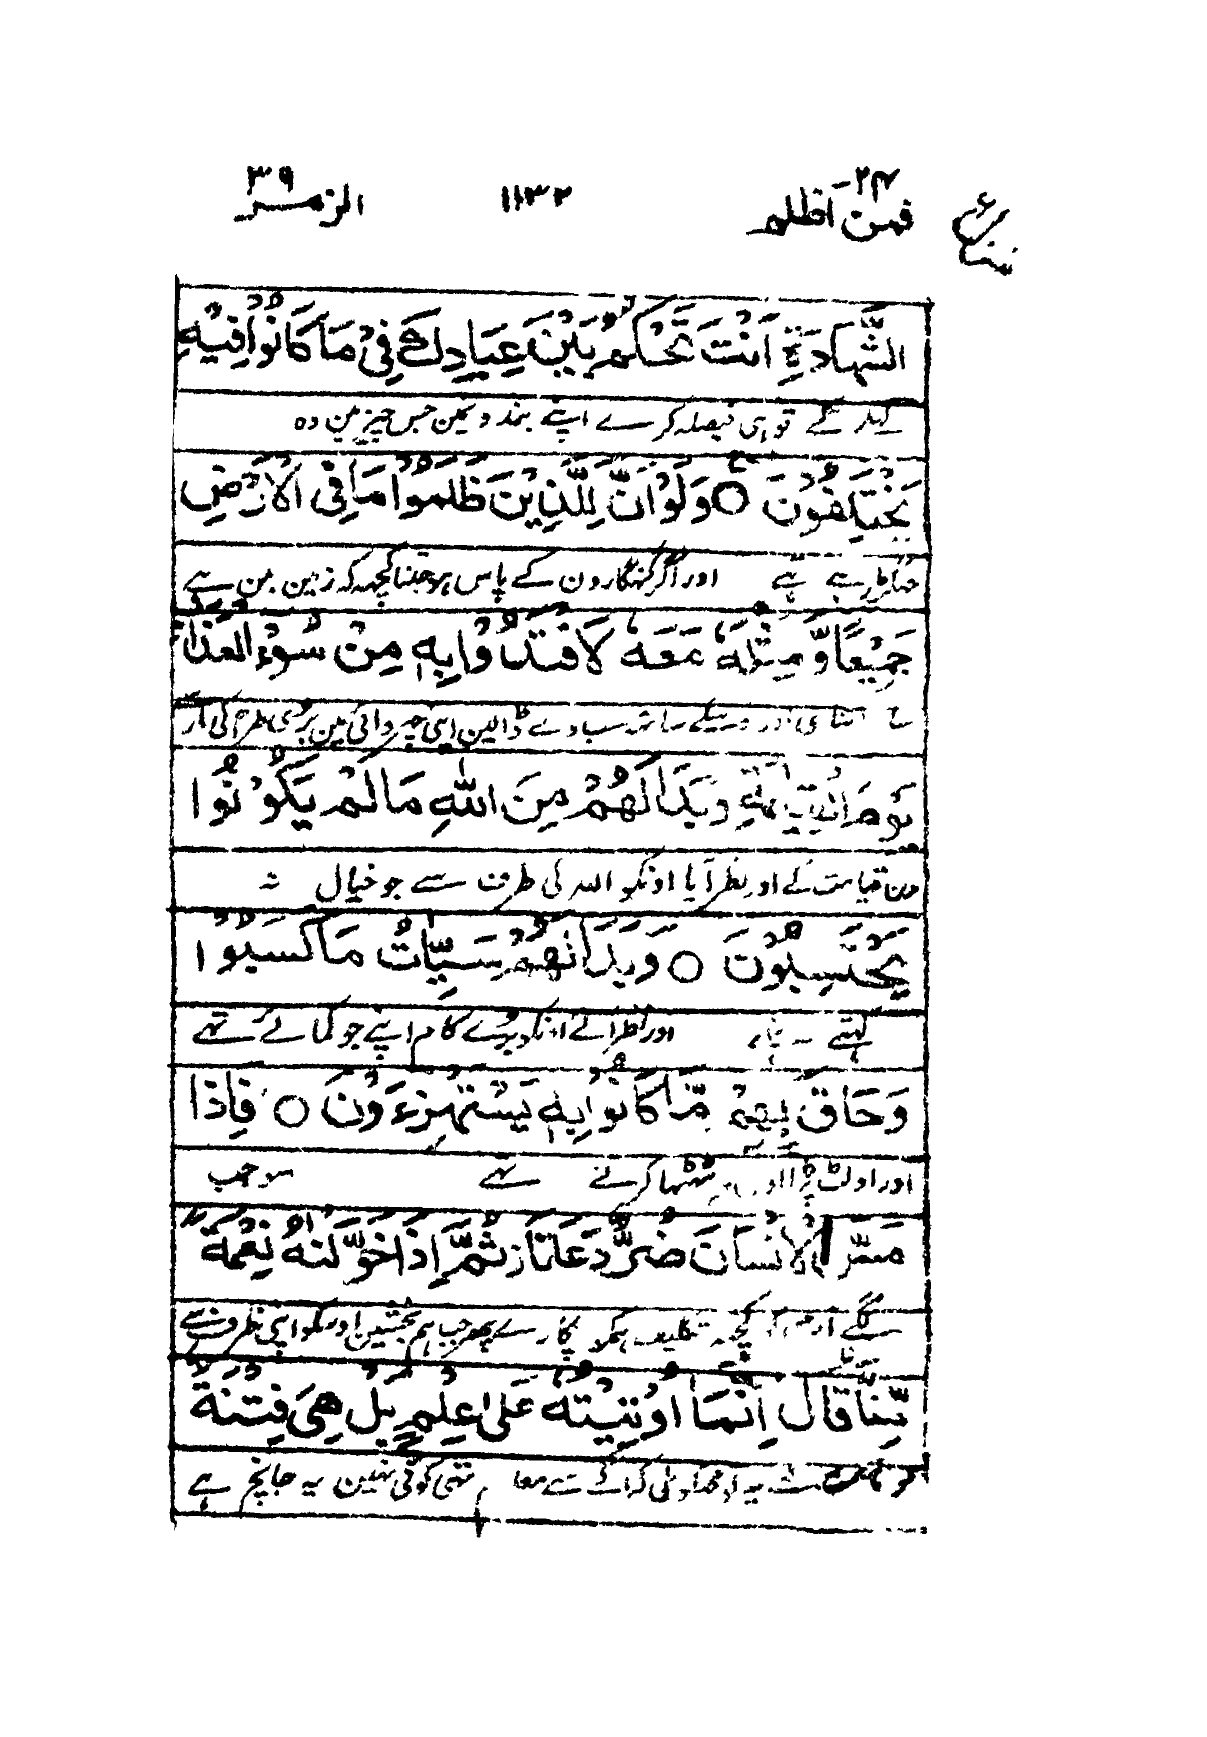 فمن اظلم ۲۴ ۱۱۳۲ الزمر ۳۹
الشَّهَادَةِ اَنْتَ تَحْكُمُ بَيْنَ عِبَادِكَ فِىْ مَا كَانُوْا فِيْهِ
تو ہی فیصلہ کرے اپنے بندونمین جس چیز مین وہ
يَخْتَلِفُوْنَ ○ وَلَوْ اَنَّ لِلَّذِيْنَ ظَلَمُوْا مَا فِى الْاَرْضِ
جھگڑ رہے ہے اور اگر گنہگارون کے پاس ہو جتنا کچھہ کہ زمین مین ہے
جَمِيْعًا وَّمِثْلَهٗ مَعَهٗ لَافْتَدَوْا بِهٖ مِنْ سُوْٓءِ الْعَذَابِ
اتنا ہی اور سب دے ڈالین اپنی بری طرح کی مار
يَوْمَ الْقِيٰمَةِ وَبَدَا لَهُمْ مِّنَ اللّٰهِ مَا لَمْ يَكُوْنُوْا
دن قیامت کے اور نظر آیا اونکو اللہ کی طرف سے جو خیال نہ
يَحْتَسِبُوْنَ ○ وَبَدَا لَهُمْ سَيِّاٰتُ مَا كَسَبُوْا
اور نظر آئے اونکو برے کام اپنے جو کمائے تھے
وَحَاقَ بِهِمْ مَّا كَانُوْا بِهٖ يَسْتَهْزِءُوْنَ ○ فَاِذَا
اور اولٹ پڑا ٹھٹھا کرتے تھے سو جب
مَسَّ الْاِنْسَانَ ضُرٌّ دَعَانَا ز ثُمَّ اِذَا خَوَّلْنٰهُ نِعْمَةً
لگے کچھہ تکلیف ہمکو پکارے پھر جب ہم بخشین اوسکو اپنی طرف سے
مِّنَّا قَالَ اِنَّمَا اُوْتِيْتُهٗ عَلٰى عِلْمٍ بَلْ هِىَ فِتْنَةٌ
کوئی نہین یہ جانچ ہے